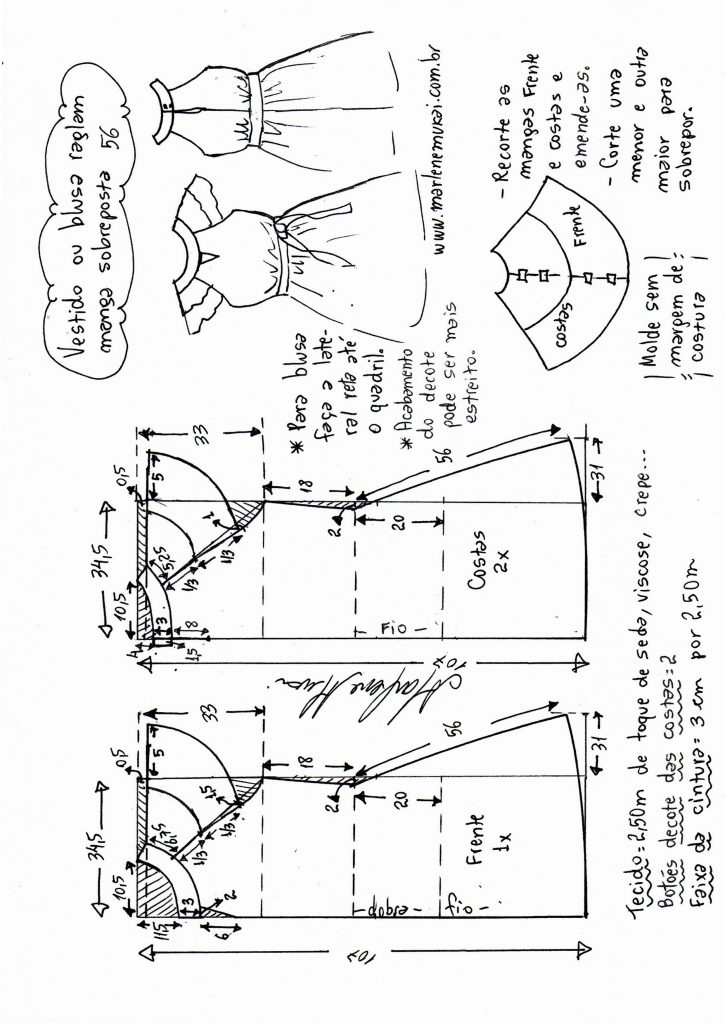 Vestido ou blusa raglam
manga sobreposta 56
www.marlenemukai.com.br
* Para blusa
faça a late-
ral reta até
o quadril.
* Acabamento
do decote
pode ser mais
estreito.
- Recorte as
mangas Frente
e costas e
emende-as.
- Corte uma
menor e outra
maior para
sobrepor.
costas
Frente
Molde sem
margem de
costura
34,5
10,5
0,5
5
33
11,5
3
6
2
6,25
1/3
1/3
1,5
18
2
20
56
31
107
Frente
1x
dobra
fio
34,5
10,5
0,5
5
33
4
3
8
1,5
5,25
1/3
1/3
2
18
2
20
56
31
107
Costas
2x
Fio
Marlene Mukai
Tecido=2,50m de toque de seda, viscose, crepe...
Botões decote das costas=2
Faixa da cintura= 3 cm por 2,50m